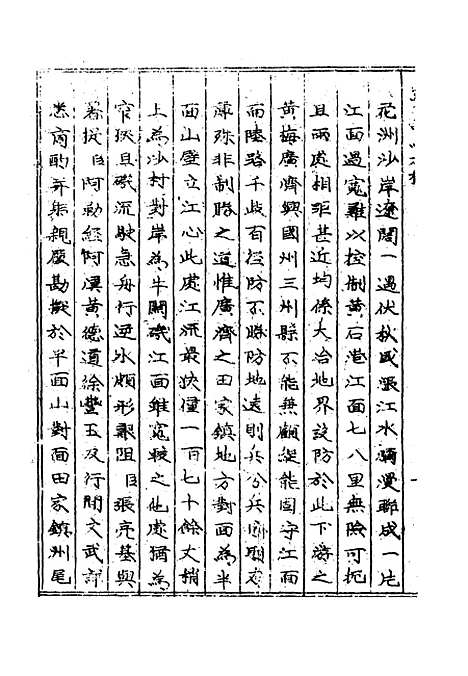 花洲沙岸遼闊一遇伏秋盛漲江水彌漫聯成一片
江面過寬難以控制黃石港江面七八里無險可扼
且兩處相距甚近均係大冶地界設防於此下游之
黃梅廣濟興國州三州縣不能兼顧縱能固守江面
而陸路千歧百徑防不勝防地遠則兵分兵分則力
薄殊非制勝之道惟廣濟之田家鎮地方對面為半
面山壁立江心此處江流最狹僅一百七十餘丈稍
上為沙村對岸為牛關磯江面雖寬較之他處猶為
窄狹且磯流駛急舟行逆水頗形艱阻臣張亮基與
署按臣阿勒經阿漢黃德道徐豐玉及行間文武
悉商酌并無親履勘擬於半面山對面田家鎮洲尾